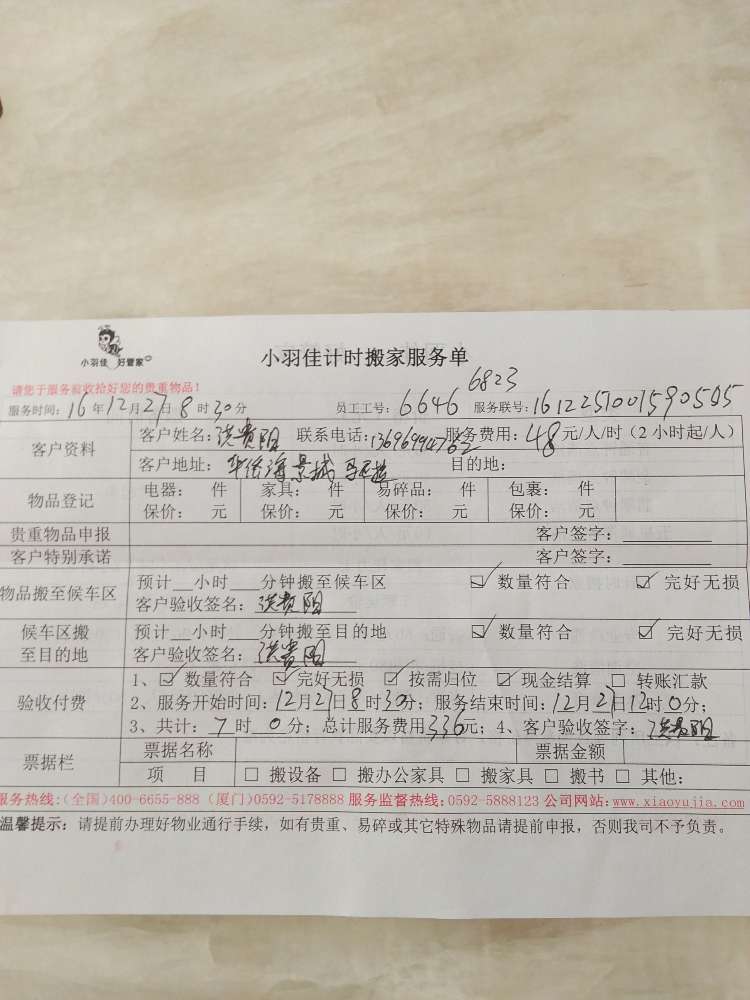 小羽佳 好管家
小羽佳计时搬家服务单
请您于服务验收拾好您的贵重物品!
6823
服务时间: 16 年 12 月 27 日 8 时 30 分 员工工号: 6646 服务联号: 1612251001590505
客户资料
客户姓名: 洪贵阳 联系电话: 13696994762 服务费用: 48 元/人/时 (2 小时起/人)
客户地址: 海景城 目的地:
物品登记
电器: 件 家具: 件 易碎品: 件 包裹: 件
保价: 元 保价: 元 保价: 元 保价: 元
贵重物品申报 客户签字:
客户特别承诺 客户签字:
物品搬至候车区
预计__小时___分钟搬至候车区 ☑ 数量符合 ☑ 完好无损
客户验收签名: 洪贵阳
候车区搬至目的地
预计__小时___分钟搬至目的地 ☑ 数量符合 ☑ 完好无损
客户验收签名: 洪贵阳
验收付费
1、☑ 数量符合 ☑ 完好无损 ☑ 按需归位 ☑ 现金结算 □ 转账汇款
2、服务开始时间: 12 月 27 日 8 时 30 分; 服务结束时间: 12 月 27 日 12 时 0 分;
3、共计: 7 时 0 分; 总计服务费用 336 元; 4、客户验收签字: 洪贵阳
票据栏
票据名称 票据金额
项 目 □ 搬设备 □ 搬办公家具 □ 搬家具 □ 搬书 □ 其他:
服务热线:(全国)400-6655-888 (厦门)0592-5178888 服务监督热线:0592-5888123 公司网站:www.xiaoyujia.com
温馨提示: 请提前办理好物业通行手续,如有贵重、易碎或其它特殊物品请提前申报,否则我司不予负责。